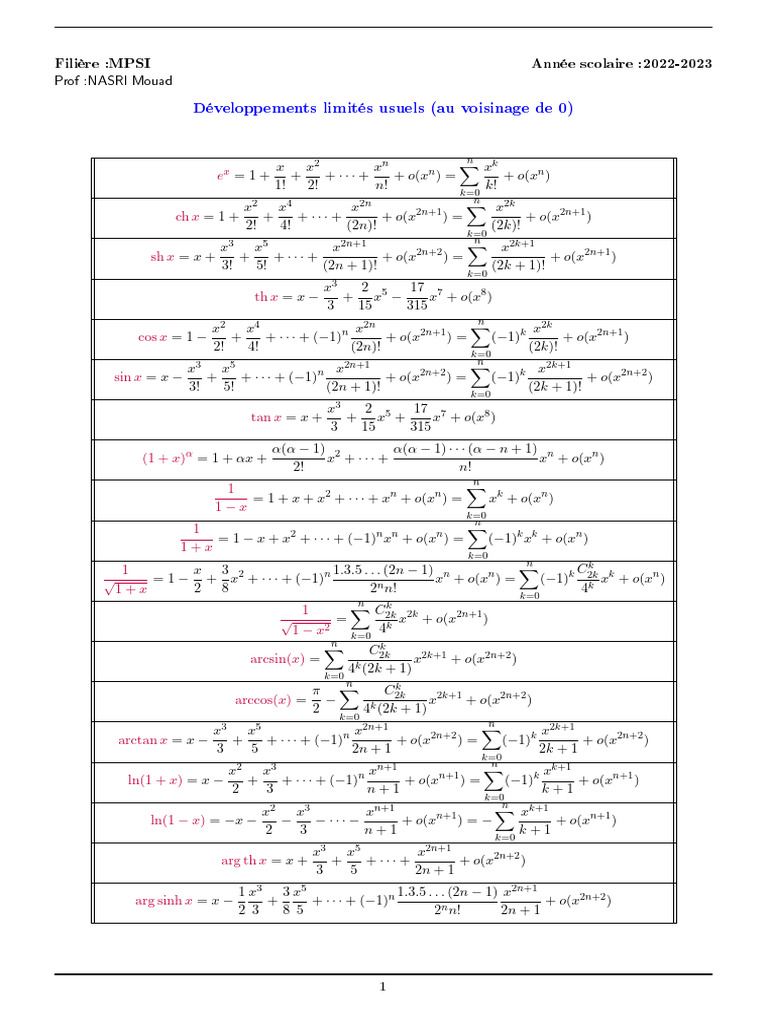 Filière :MPSI Année scolaire :2022-2023
Prof :NASRI Mouad
Développements limités usuels (au voisinage de 0)
$e^x = 1 + \frac{x}{1!} + \frac{x^2}{2!} + \cdots + \frac{x^n}{n!} + o(x^n) = \sum_{k=0}^{n} \frac{x^k}{k!} + o(x^n)$
$\operatorname{ch} x = 1 + \frac{x^2}{2!} + \frac{x^4}{4!} + \cdots + \frac{x^{2n}}{(2n)!} + o(x^{2n+1}) = \sum_{k=0}^{n} \frac{x^{2k}}{(2k)!} + o(x^{2n+1})$
$\operatorname{sh} x = x + \frac{x^3}{3!} + \frac{x^5}{5!} + \cdots + \frac{x^{2n+1}}{(2n+1)!} + o(x^{2n+2}) = \sum_{k=0}^{n} \frac{x^{2k+1}}{(2k+1)!} + o(x^{2n+1})$
$\operatorname{th} x = x - \frac{x^3}{3} + \frac{2}{15}x^5 - \frac{17}{315}x^7 + o(x^8)$
$\cos x = 1 - \frac{x^2}{2!} + \frac{x^4}{4!} + \cdots + (-1)^n \frac{x^{2n}}{(2n)!} + o(x^{2n+1}) = \sum_{k=0}^{n} (-1)^k \frac{x^{2k}}{(2k)!} + o(x^{2n+1})$
$\sin x = x - \frac{x^3}{3!} + \frac{x^5}{5!} + \cdots + (-1)^n \frac{x^{2n+1}}{(2n+1)!} + o(x^{2n+2}) = \sum_{k=0}^{n} (-1)^k \frac{x^{2k+1}}{(2k+1)!} + o(x^{2n+2})$
$\tan x = x + \frac{x^3}{3} + \frac{2}{15}x^5 + \frac{17}{315}x^7 + o(x^8)$
$(1+x)^\alpha = 1 + \alpha x + \frac{\alpha(\alpha-1)}{2!}x^2 + \cdots + \frac{\alpha(\alpha-1)\cdots(\alpha-n+1)}{n!}x^n + o(x^n)$
$\frac{1}{1-x} = 1 + x + x^2 + \cdots + x^n + o(x^n) = \sum_{k=0}^{n} x^k + o(x^n)$
$\frac{1}{1+x} = 1 - x + x^2 + \cdots + (-1)^n x^n + o(x^n) = \sum_{k=0}^{n} (-1)^k x^k + o(x^n)$
$\frac{1}{\sqrt{1+x}} = 1 - \frac{x}{2} + \frac{3}{8}x^2 + \cdots + (-1)^n \frac{1.3.5\ldots(2n-1)}{2^n n!}x^n + o(x^n) = \sum_{k=0}^{n} (-1)^k \frac{C_{2k}^k}{4^k}x^k + o(x^n)$
$\frac{1}{\sqrt{1-x^2}} = \sum_{k=0}^{n} \frac{C_{2k}^k}{4^k}x^{2k} + o(x^{2n+1})$
$\arcsin(x) = \sum_{k=0}^{n} \frac{C_{2k}^k}{4^k(2k+1)}x^{2k+1} + o(x^{2n+2})$
$\arccos(x) = \frac{\pi}{2} - \sum_{k=0}^{n} \frac{C_{2k}^k}{4^k(2k+1)}x^{2k+1} + o(x^{2n+2})$
$\arctan x = x - \frac{x^3}{3} + \frac{x^5}{5} + \cdots + (-1)^n \frac{x^{2n+1}}{2n+1} + o(x^{2n+2}) = \sum_{k=0}^{n} (-1)^k \frac{x^{2k+1}}{2k+1} + o(x^{2n+2})$
$\ln(1+x) = x - \frac{x^2}{2} + \frac{x^3}{3} + \cdots + (-1)^n \frac{x^{n+1}}{n+1} + o(x^{n+1}) = \sum_{k=0}^{n} (-1)^k \frac{x^{k+1}}{k+1} + o(x^{n+1})$
$\ln(1-x) = -x - \frac{x^2}{2} - \frac{x^3}{3} - \cdots - \frac{x^{n+1}}{n+1} + o(x^{n+1}) = -\sum_{k=0}^{n} \frac{x^{k+1}}{k+1} + o(x^{n+1})$
$\operatorname{arg\,th} x = x + \frac{x^3}{3} + \frac{x^5}{5} + \cdots + \frac{x^{2n+1}}{2n+1} + o(x^{2n+2})$
$\operatorname{arg\,sinh} x = x - \frac{1}{2}\frac{x^3}{3} + \frac{3}{8}\frac{x^5}{5} + \cdots + (-1)^n \frac{1.3.5\ldots(2n-1)}{2^n n!}\frac{x^{2n+1}}{2n+1} + o(x^{2n+2})$
1